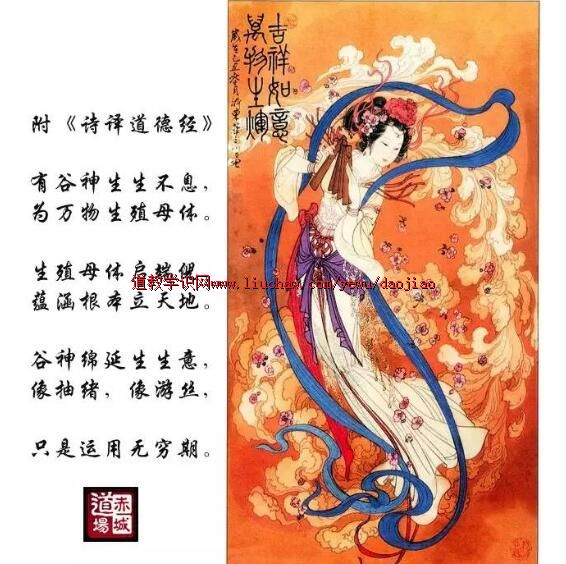 附《诗译道德经》
有谷神生生不息，
为万物生殖母体。
生殖母体启端倪，
道教学识网www.liuchaw.com/yewu/daojiao
蕴涵根本立天地。
谷神绵延生生意，
像抽绪，像游丝，
只是运用无穷期。
赤城
道場
吉祥如意
萬物生煇